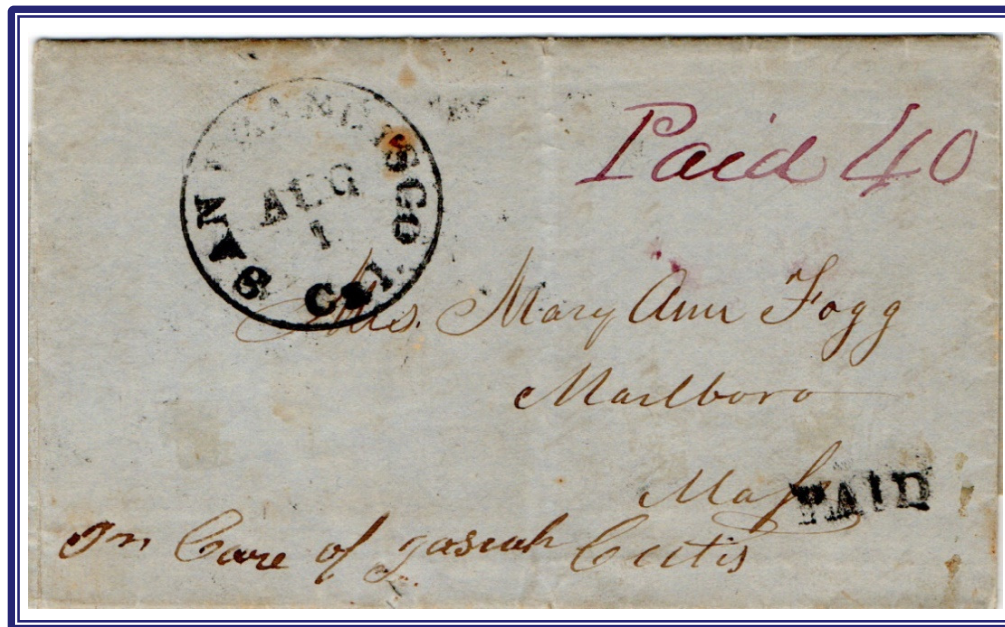 SAN FRANCISCO Cal.
AUG
1
Paid 40
Mrs. Mary Ann Fogg
Marlboro
Mass
PAID
In Care of Josiah Curtis